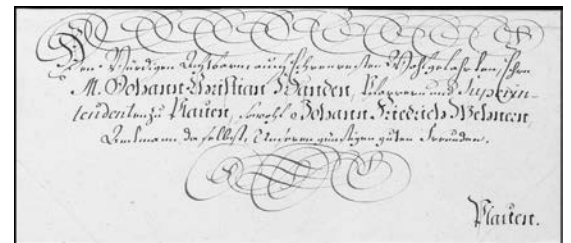 Den Würdigen Achtbarn, auch Ehrenvesten Wohlgelahrten, Ehrn
M. Johann Christian Handen, Pfarrer und Superin-
tendenten zu Plauen, sowohl Johann Friedrich Wehnern,
Amtmann daselbst, Unseren günstigen guten Freunden.
Plauen.